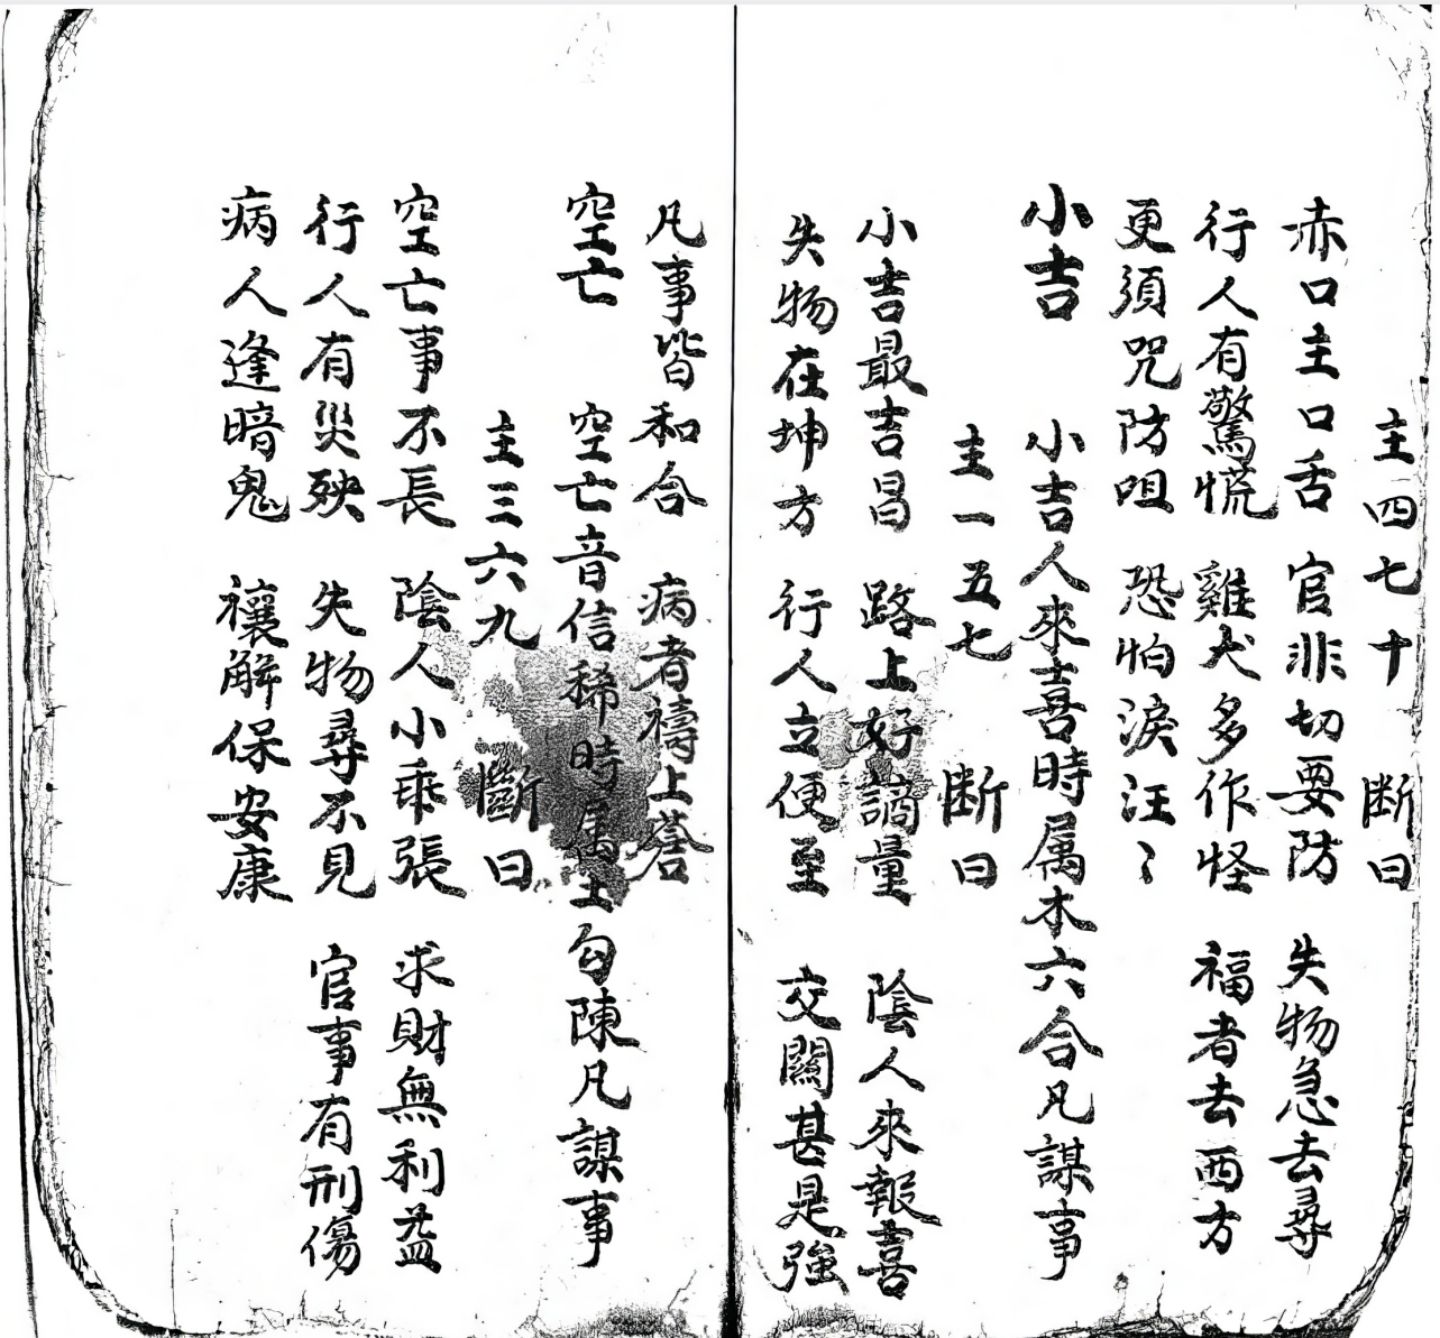 主四七十 断曰
赤口主口舌 官非切要防 失物急去尋
行人有驚慌 雞犬多作怪 福者去西方
更須咒防咀 恐怕淚汪〻
小吉 小吉人來喜時属木六合凡謀事
主一五七 断曰
小吉最吉昌 路上好謫量 陰人來報喜
失物在坤方 行人立便至 交關甚是強
凡事皆和合 病者禱上蒼
空亡 空亡音信稀時属土勾陳凡謀事
主三六九 斷曰
空亡事不長 陰人小乖張 求財無利益
行人有災殃 失物尋不見 官事有刑傷
病人逢暗鬼 禳解保安康